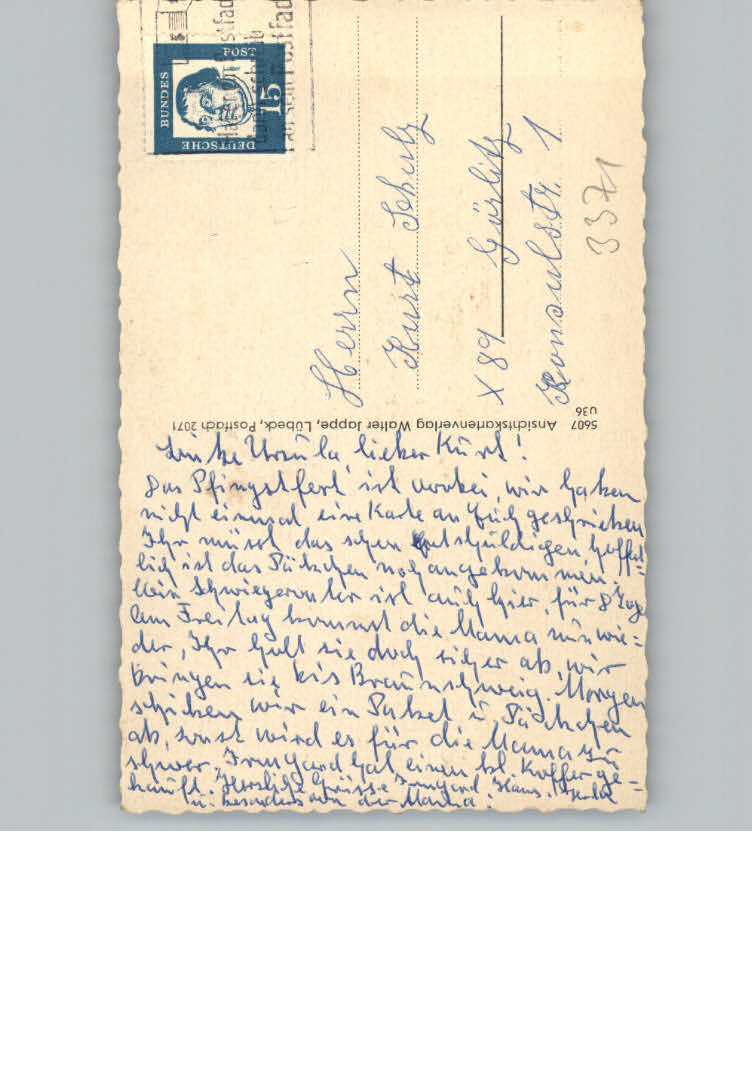 Liebe Ursula, lieber Kurt!
Das Pfingstfest ist vorbei, wir haben
nicht einmal eine Karte an Euch geschrieben
Ihr müsst das schon entschuldigen hoffent=
lich ist das Päckchen noch angekommen.
Mein Schwiegervater ist auch hier, für 8 Tage
Am Freitag kommt die Mama nun wie=
der, Ihr holt sie doch sicher ab, wir
bringen sie bis Braunschweig. Morgen
schicken wir ein Paket u. Päckchen
ab, sonst wird es für die Mama zu
schwer. Irmgard hat einen Koffer ge=
kauft. Herzliche Grüsse Irmgard, Hans.
u. besonders von der Mama.
5607 Ansichtskartenverlag Walter Jappe, Lübeck, Postfach 2071
u36
DEUTSCHE
BUNDES
POST
15
Postfach
Herrn
Kurt Schulz
X 89 Görlitz
Konsulstr. 1
3371